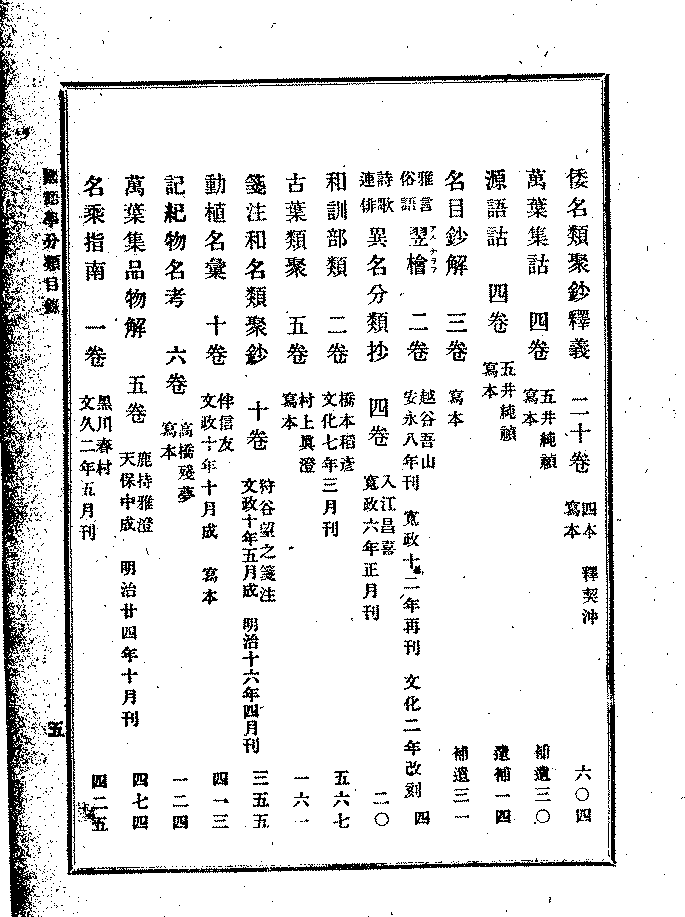 倭名類聚鈔釋義 二十卷 四本 寫本 釋契沖 六〇四
萬葉集詁 四卷 五井純禎 寫本 補遺三〇
源語詁 四卷 五井純禎 寫本 遺補一四
名目鈔解 三卷 寫本 補遺三一
雅言俗語 翌檜 アスナラフ 二卷 越谷吾山 安永八年刊 寛政十二年再刊 文化二年改刻 四
詩歌連俳 異名分類抄 四卷 入江昌喜 寛政六年正月刊 二〇
和訓部類 二卷 橋本稻彥 文化七年三月刊 五六七
古葉類聚 五卷 村上眞澄 寫本 一六一
箋注和名類聚鈔 十卷 狩谷望之箋注 文政十年五月成 明治十六年四月刊 三五五
動植名彙 十卷 伴信友 文政十年十月成 寫本 四一三
記紀物名考 六卷 高橋殘夢 寫本 一二四
萬葉集品物解 五卷 鹿持雅澄 天保中成 明治廿四年十月刊 四七四
名乘指南 一卷 黑川春村 文久二年五月刊 四二五
國語學分類目錄 五